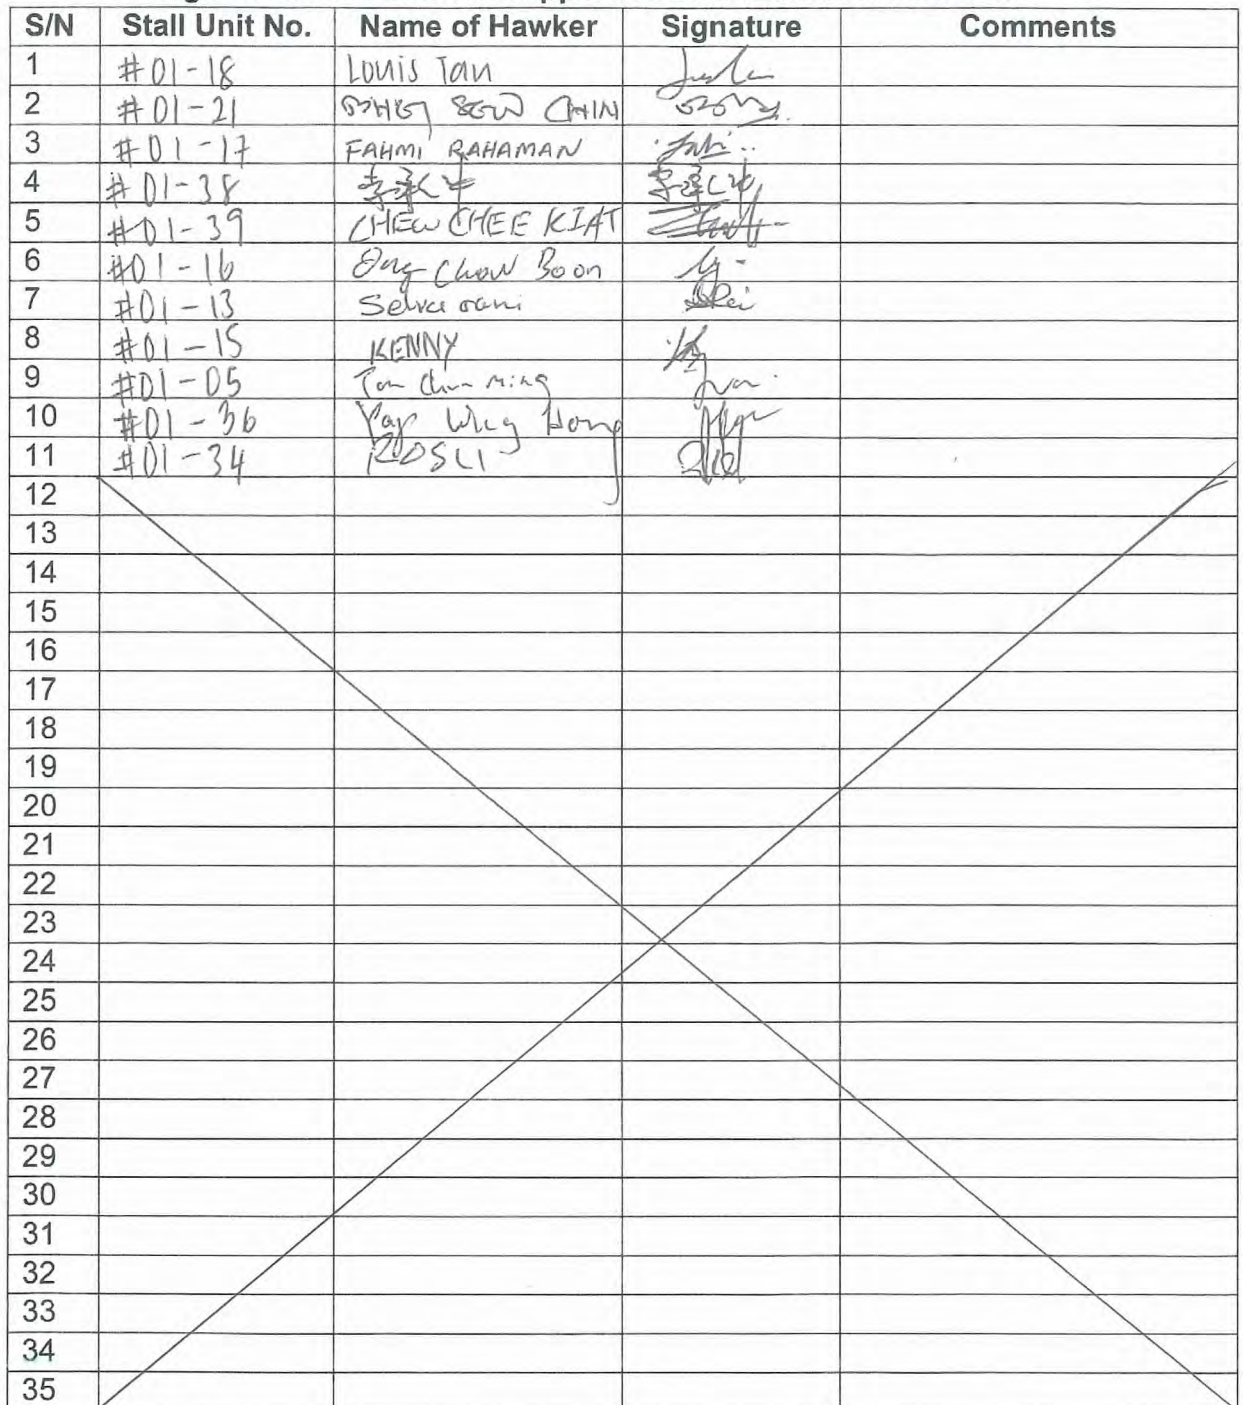 S/N Stall Unit No. Name of Hawker Signature Comments
1 #01-18 Louis Tan
2 #01-21 SEOW CHIN
3 #01-17 FAHMI RAHAMAN
4 #01-38 李承
5 #01-39 CHEW CHEE KIAT
6 #01-16 Ong Chow Boon
7 #01-13 Selva rani
8 #01-15 KENNY
9 #01-05 Tan Chun Ming
10 #01-36 Yap Hong
11 #01-34 ROSLI
12
13
14
15
16
17
18
19
20
21
22
23
24
25
26
27
28
29
30
31
32
33
34
35